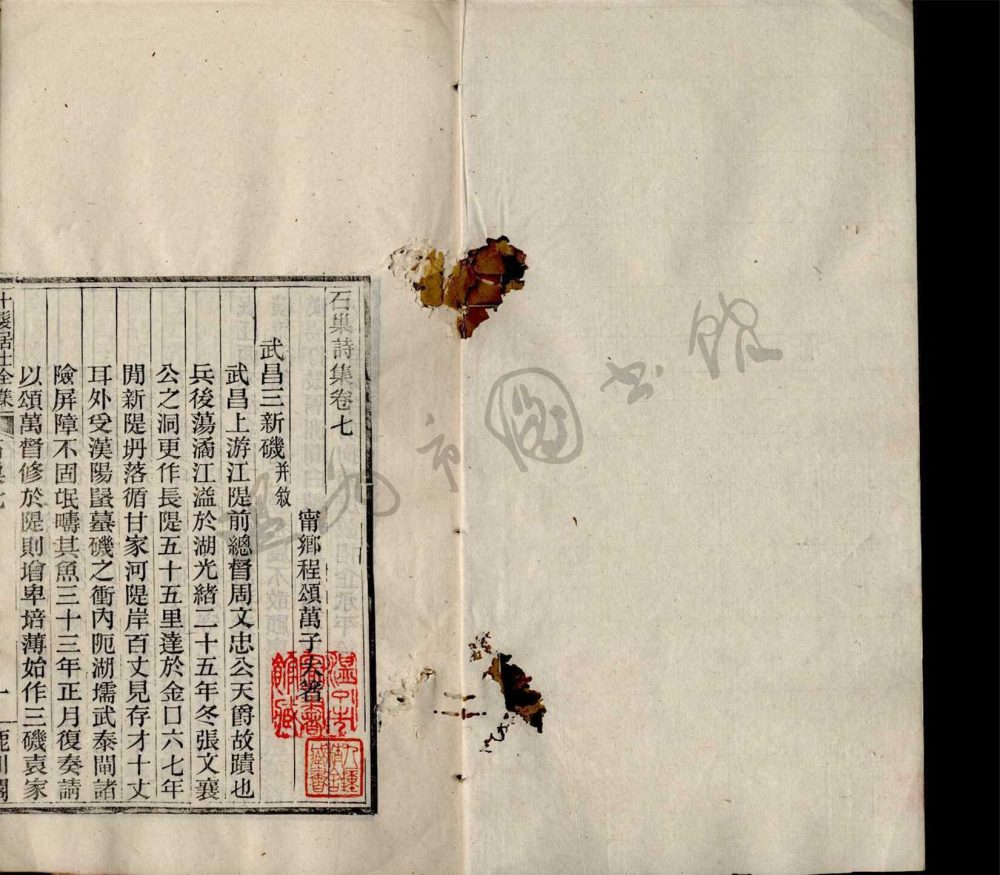 石巢詩集卷七
甯鄉程頌萬子大著
武昌三新磯并敘
武昌上游江隄前總督周文忠公天爵故蹟也
兵後蕩潏江溢於湖光緒二十五年冬張文襄
公之洞更作長隄五十五里達於金口六七年
閒新隄坍落循甘家河隄岸百丈見存才十丈
耳外受漢陽蟇磯之衝內阨湖壖武泰閘諸
險屏障不固氓疇其魚三十三年正月復奏請
以頌萬督修於隄則增卑培薄始作三磯袁家
十髮居士全集
一
鹿川閣
市圖書館